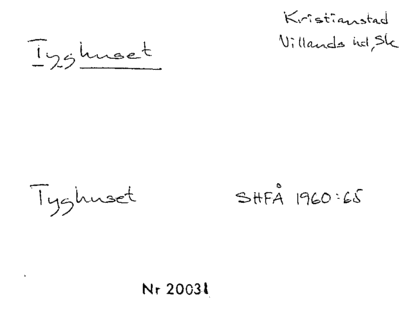 Kristianstad
Tyghuset
Villands hd, Sk
Tyghuset SHFÅ 1960:65
Nr 20031